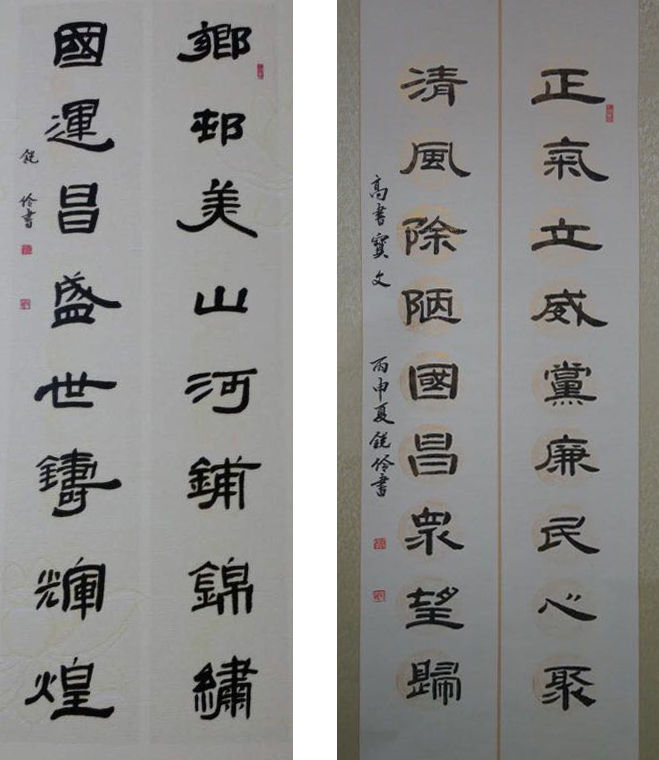 鄉邨美山河鋪錦繡
國運昌盛世鑄輝煌
銳伶書
正氣立威黨廉民心聚
清風除陋國昌眾望歸
高書寶文 丙申夏銳伶書